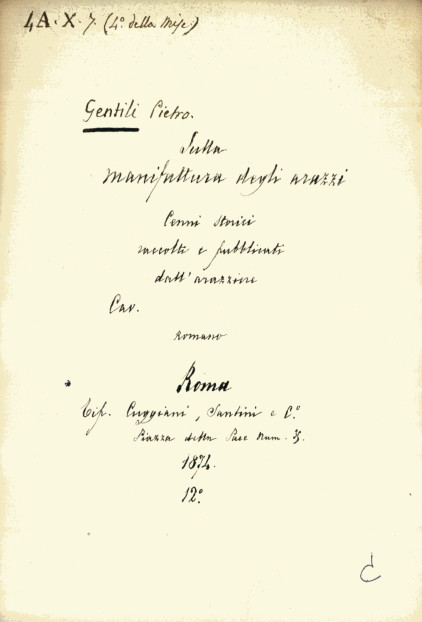 4A. X. 7. (4.° della Misc.)
Gentili Pietro.
Sulla
manifattura degli arazzi
Cenni storici
raccolti e pubblicati
dall' arazziere
Cav.
romano
Roma
Tip. Cuggiani, Santini e C.°
Piazza della Pace Num. 35.
1874.
12.°
C